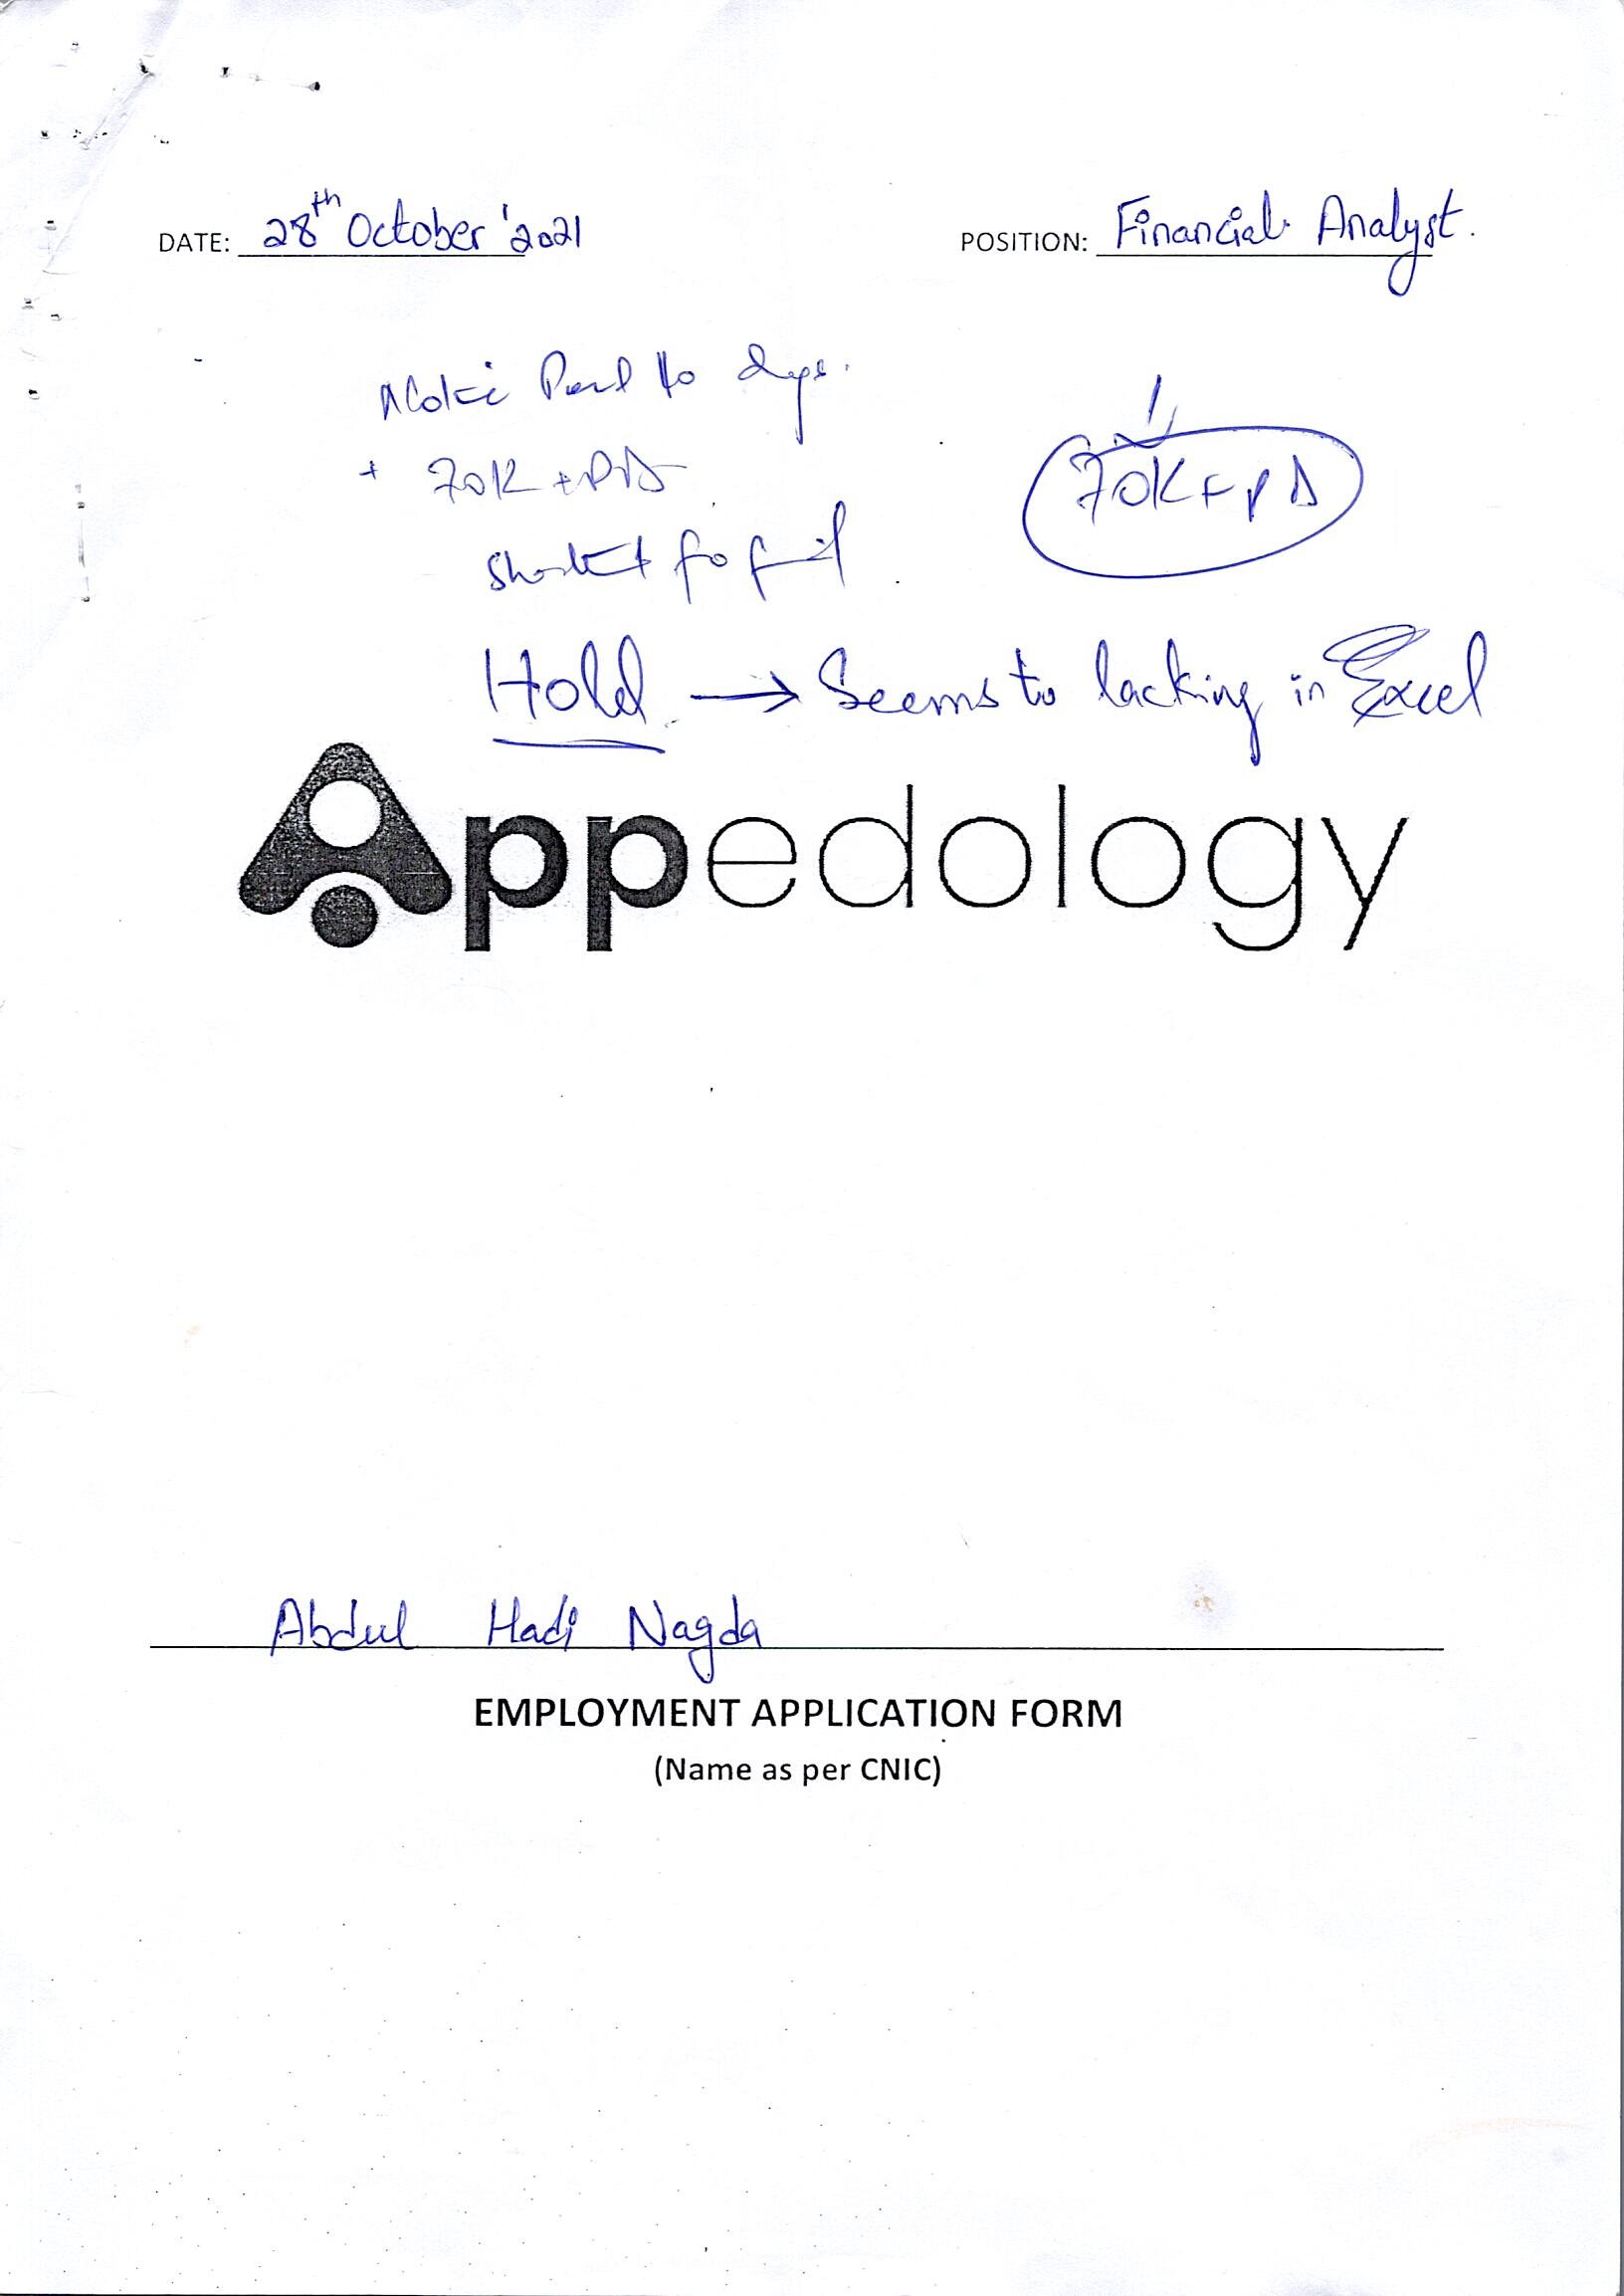 DATE: 28th October '2021
POSITION: Financial Analyst.
days.
+ 70K +
70K + PA
Hold → Seems to lacking in Excel
Appedology
Abdul Hadi Nagda
EMPLOYMENT APPLICATION FORM
(Name as per CNIC)